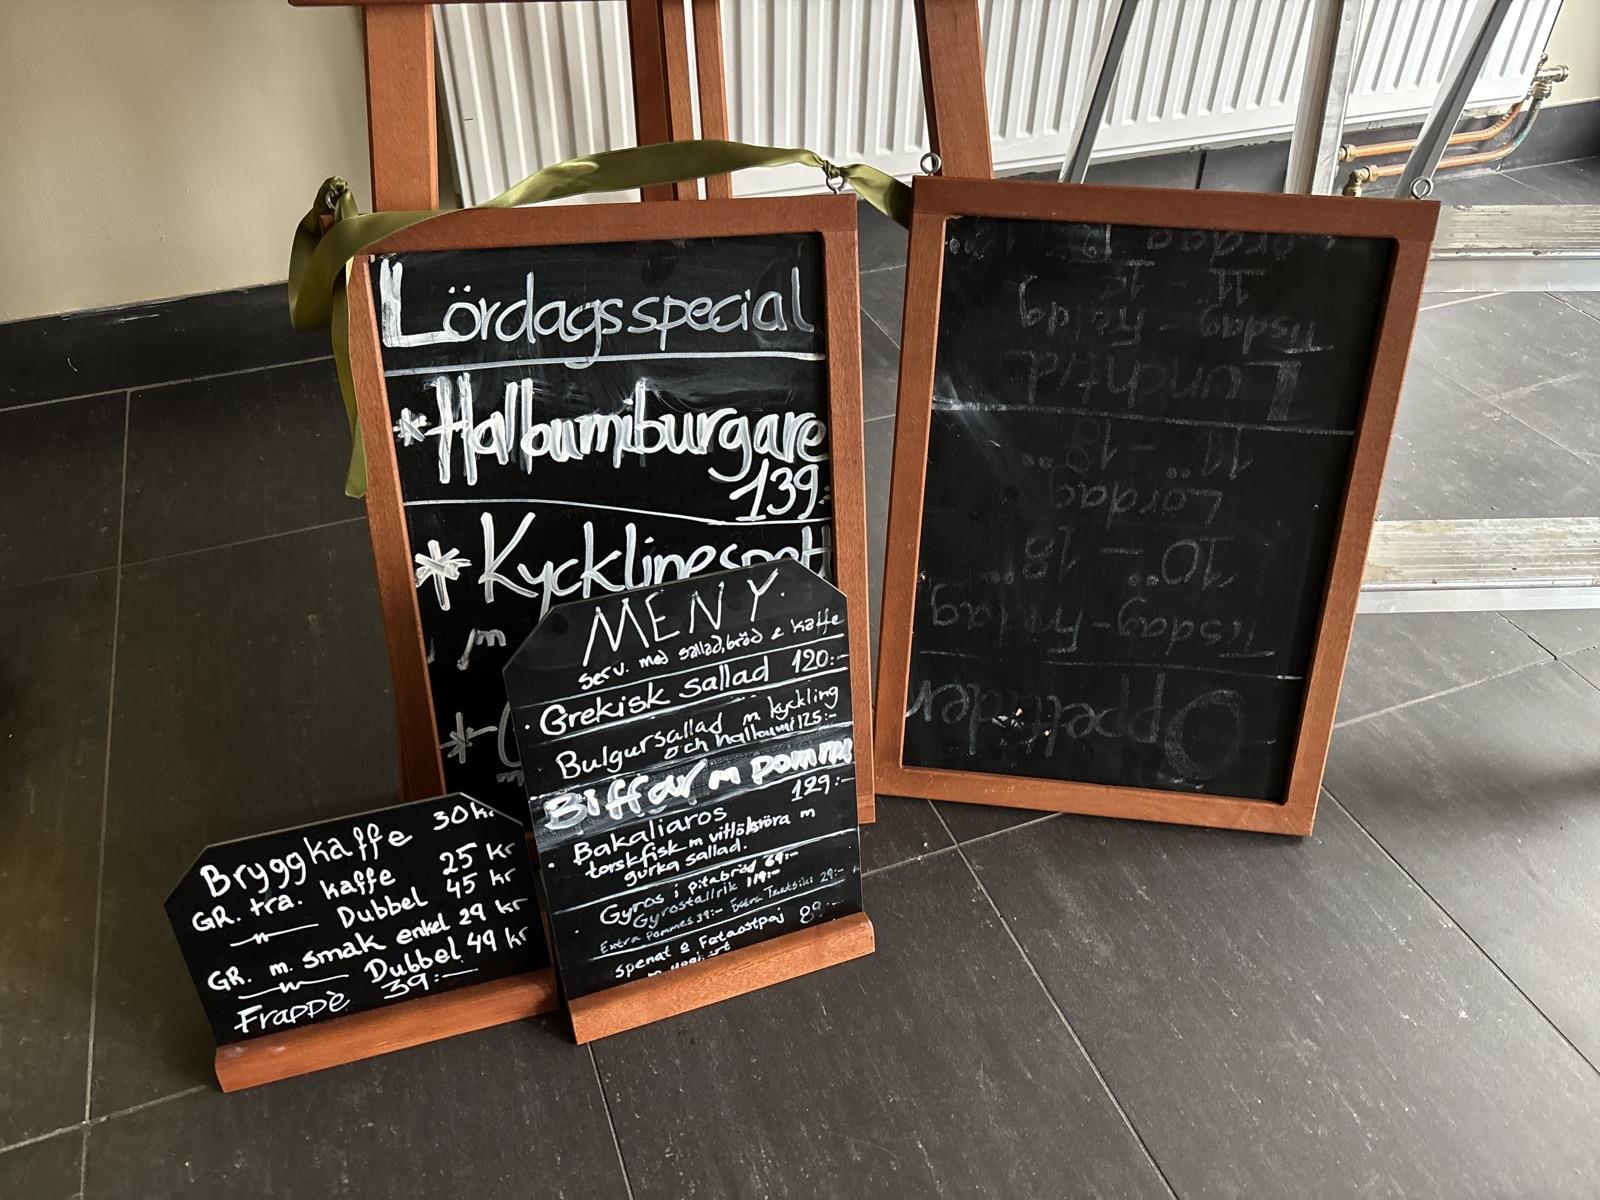 Lördagsspecial
*Halloumiburgare
139:-
*Kycklingspett
m
*
MENY.
serv. med sallad, bröd & kaffe
· Grekisk sallad 120:-
Bulgursallad m kyckling
och halloumi 125:-
Biffar m pommes
129:-
· Bakaliaros
torskfisk m vitlöksröra m
gurka sallad.
· Gyros i pitabröd 69:-
Gyrostallrik 119:-
Extra Pommes 39:- Extra Tzatsiki 29:-
spenat & Fetaostpaj 89:-
Bryggkaffe 30kr
GR. tra. kaffe 25 kr
—"— Dubbel 45 kr
GR. m. smak enkel 29 kr
—"— Dubbel 49 kr
Frappè 39:-
Öppettider
Tisdag-Fredag
10⁰⁰ - 18⁰⁰
Lördag
Lunchtid
Tisdag - Fredag
Lördag